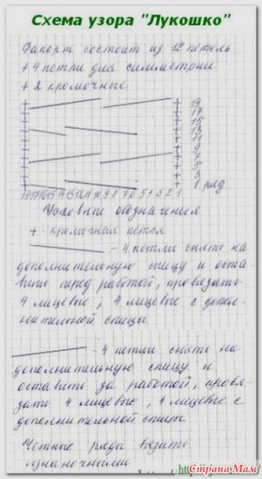 Схема узора "Лукошко"
Рапорт состоит из 12 петель
+ 4 петли для симметрии
+ 2 кромочные
19
17
15
13
11
9
7
5
3
1 ряд
Условные обозначения
+ - кромочная петля
- 4 петли снять на
дополнительную спицу и оста-
вить перед работой, провязать
4 лицевые, 4 лицевые с допол-
нительной спицы.
- 4 петли снять на
дополнительную спицу и
оставить за работой, провя-
зать 4 лицевые, 4 лицевые с
дополнительной спицы
Четные ряды вязать
изнаночными
Страна Мам